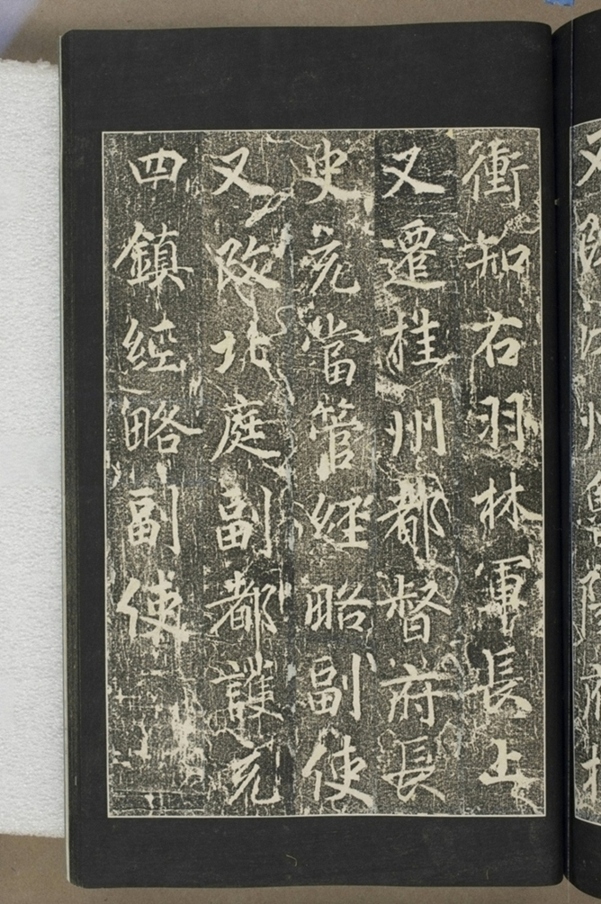 衝知右羽林軍長上
又遷桂州都督府長
史充當管經略副使
又改北庭副都護充
四鎮經略副使